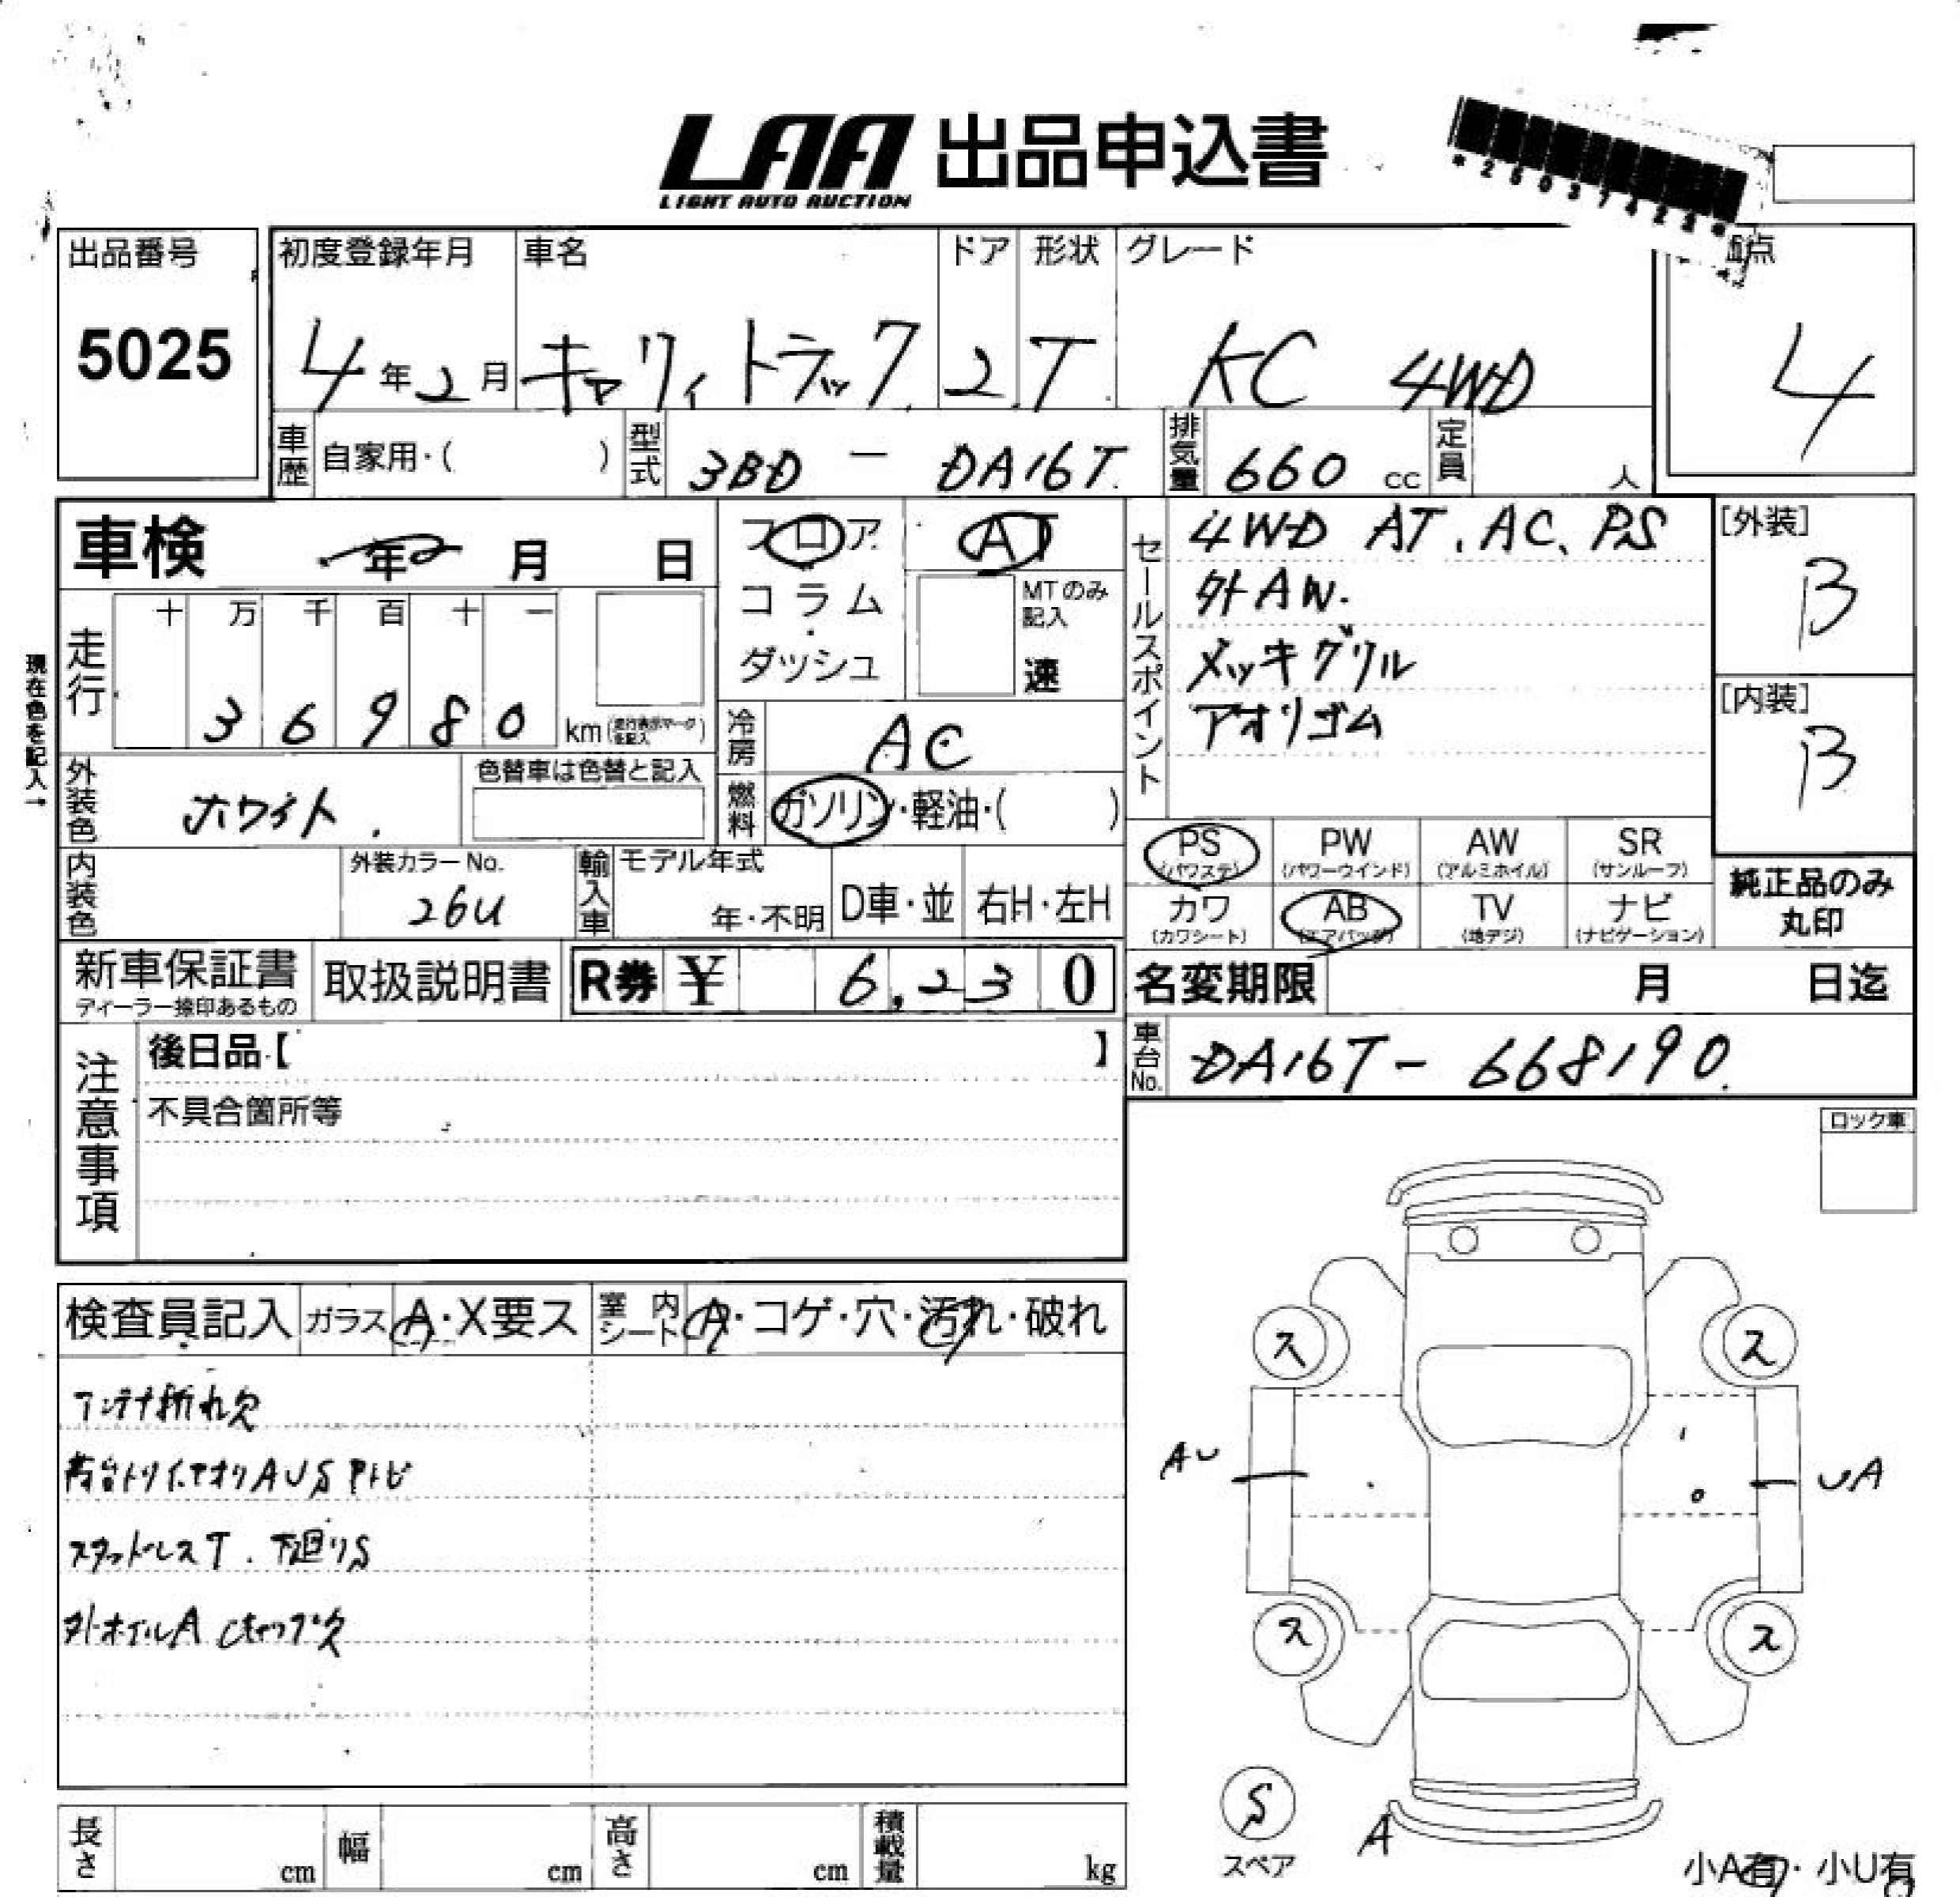 LAA 出品申込書
LIGHT AUTO AUCTION
*25037423*
出品番号
5025
初度登録年月
4年2月
車名
キャリィトラック
ドア
2
形状
T
グレード
KC 4WD
評点
4
車歴 自家用・( )
型式 3BD - DA16T
排気量 660 cc
定員 人
車検 年 月 日
フロア
コラム
・
ダッシュ
AT
MTのみ記入
速
セールスポイント
4WD AT、AC、PS
外AW.
メッキグリル
アオリゴム
[外装]
B
[内装]
B
現在色を記入→
走行
十 万 千 百 十 一
3 6 9 8 0 km (走行表示マークを記入)
冷房 AC
燃料 ガソリン・軽油・( )
外装色 ホワイト
色替車は色替と記入
内装色
外装カラーNo.
26U
輸入車
モデル年式
年・不明
D車・並
右H・左H
PS (パワステ)
PW (パワーウインド)
AW (アルミホイル)
SR (サンルーフ)
カワ (カワシート)
AB (エアバッグ)
TV (地デジ)
ナビ (ナビゲーション)
純正品のみ
丸印
新車保証書
ディーラー捺印あるもの
取扱説明書
R券 ¥ 6,230
名変期限 月 日迄
車台No. DA16T - 668190
注意事項
後日品【 】
不具合箇所等
ロック車
検査員記入 ガラス A・X要ス
室内シート A・コゲ・穴・汚れ・破れ
アンテナ折れ欠
荷台トリイ.アオリAUSサビ
スタッドレスT. 下廻りS
外ホイルA Cキャップ欠
ス
ス
AU
UA
ス
ス
S
スペア
A
小A有・小U有
長さ cm
幅 cm
高さ cm
積載量 kg